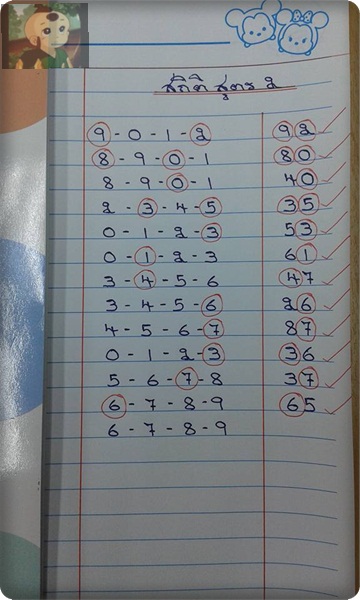 สถิติ สูตร 2
9 - 0 - 1 - 2 92
8 - 9 - 0 - 1 80
8 - 9 - 0 - 1 40
2 - 3 - 4 - 5 35
0 - 1 - 2 - 3 53
0 - 1 - 2 - 3 61
3 - 4 - 5 - 6 47
3 - 4 - 5 - 6 26
4 - 5 - 6 - 7 87
0 - 1 - 2 - 3 36
5 - 6 - 7 - 8 37
6 - 7 - 8 - 9 65
6 - 7 - 8 - 9